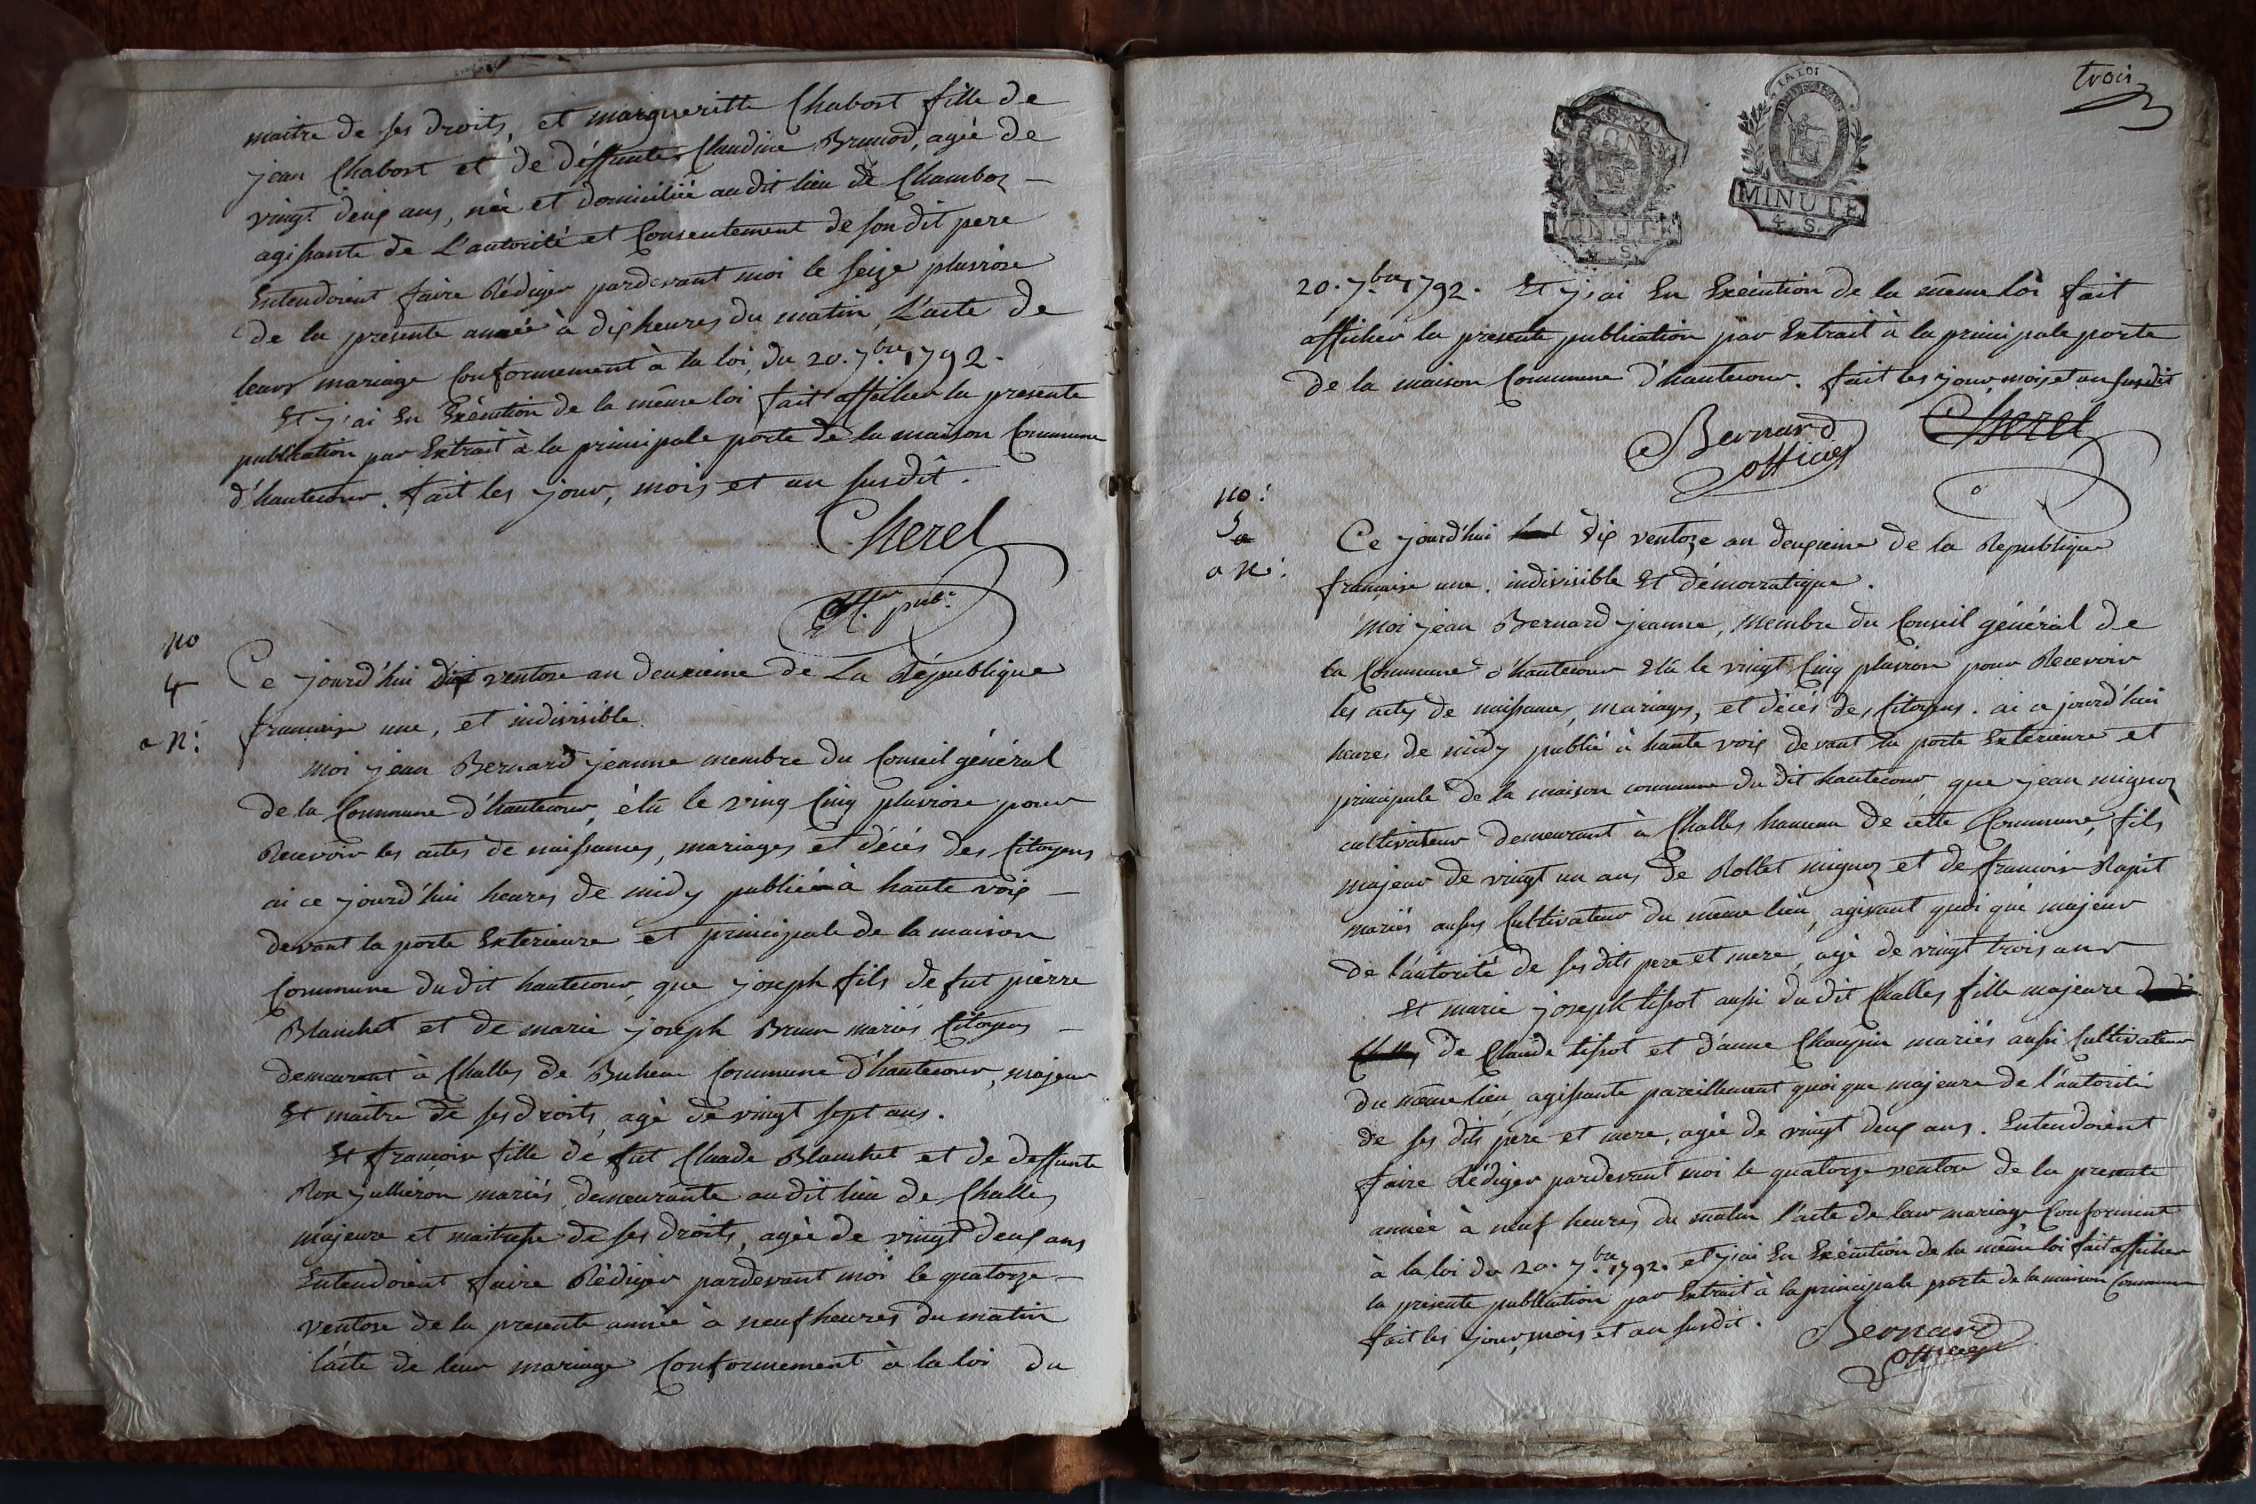 maitre de ses droits, et margueritte Chabort fille de
jean Chabort et de déffunte Claudine Brunod, agée de
vingt deux ans, née et domiciliée audit lieu de Chambo
agissante de L'autorité et Consentement de son dit pere
Entendoient faire Rédiger pardevant moi le seize pluviose
de la presente année à dix heures du matin, L'acte de
leur mariage Conformement à la loi, du 20. 7.bre 1792.
Et j'ai En Exécution de la même loi fait afficher la presente
publication par Extrait à la principale porte de la maison Commune
d'hautecour. fait les jour, mois et an susdit.
Cherel
off. pub.
no
4
Ce jourd'hui dix ventose an deuxieme de La République
francaise une, et indivisible.
moi jean Bernard jeanne membre du Conseil général
de la Commune d'hautecour, élû le ving Cinq pluviose pour
Recevoir les actes de naissances, mariages et décès des Citoyens
ai ce jourd'hui heures de midy publié à haute voix
devant la porte Exterieure et principale de la maison
Commune du dit hautecour, que joseph fils de fut pierre
Blanchet et de marie joseph Brun mariés Citoyens
demeurant à Challes de Commune d'hautecour, majeur
Et maitre de ses droits, agé de vingt sept ans.
Et francoise fille de fut Claude Blanchet et de deffunte
Rose Jullieron mariés, demeurante audit lieu de Challes
majeure et maitresse de ses droits, agée de vingt deux ans
Entendoient faire Rédiger pardevant moi le quatorze
ventose de la presente année à neuf heures du matin
l'acte de leur mariage Conformement à la loi du
trois
LA LOI
MINUTE
4. S.
MINUTE
4. S.
20. 7.bre 1792. Et j'ai En Exécution de la même loi fait
afficher la presente publication par Extrait à la principale porte
de la maison Commune d'hautecour. fait les jour mois et an susdit
Bernard Cherel
officier
no:
5
Ce jourd'hui dix ventoze an deuxieme de la République
francaise une. indivisible Et démocratique.
Moi jean Bernard jeanne, Membre du Conseil général de
la Commune d'hautecour Elû le vingt Cinq pluviose pour Recevoir
les actes de naissances, mariages, et décès des Citoyens. ai ce jourd'hui
heures de midy publié à haute voix devant la porte Exterieure et
principale de la maison commune du dit hautecour, que jean mignoz
cultivateur demeurant à Challes hameau de cette Commune, fils
majeur de vingt un ans de Rollet mignoz et de francoise Rapit
mariés aussy Cultivateur du même lieu, agissant quoi que majeur
de l'autorité de ses dits pere et mere, agé de vingt trois ans
Et marie joseph tissot aussi du dit Challes fille majeure
de Claude tissot et d'anne Chaupin mariés aussi Cultivateur
du même lieu, agissante pareillement quoi que majeure de l'autorité
de ses dits pere et mere, agée de vingt deux ans. Entendoient
faire Rédiger pardevant moi le quatorze ventose de la presente
année à neuf heures du matin l'acte de leur mariage Conforment
à la loi du 20. 7.bre 1792. et j'ai En Exécution de la même loi fait afficher
la presente publication par Extrait à la principale porte de la maison Commune
fait les jour, mois et an susdit.
Bernard
officier